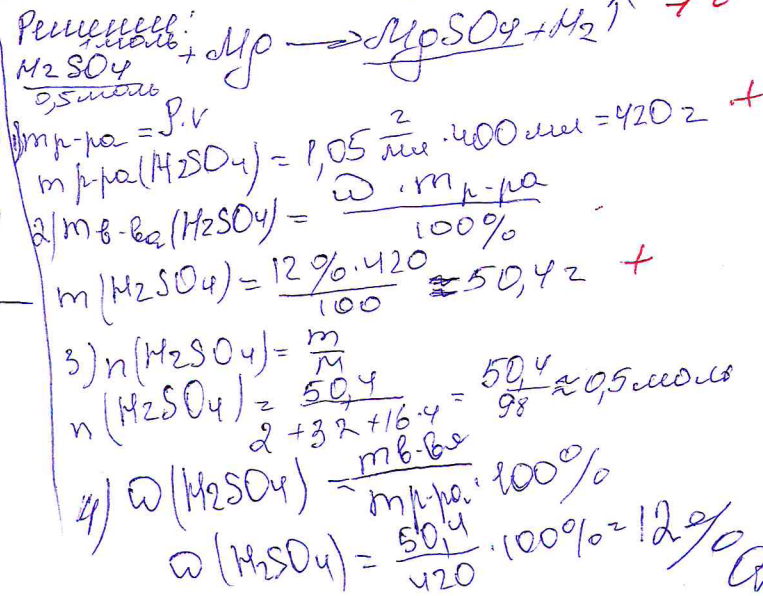 Решение:
1 моль
H2SO4 + Mg ⟶ MgSO4 + H2↑ +
0,5 моль
1) m р-ра = ρ·V
m р-ра (H2SO4) = 1,05 г/мл · 400 мл = 420 г +
2) m в-ва (H2SO4) = ω · m р-ра / 100%
m (H2SO4) = 12% · 420 / 100 = 50,4 г +
3) n (H2SO4) = m / M
n (H2SO4) = 50,4 / 2 + 32 + 16·4 = 50,4 / 98 ≈ 0,5 моль
4) ω (H2SO4) = m в-ва / m р-ра · 100%
ω (H2SO4) = 50,4 / 420 · 100% = 12%